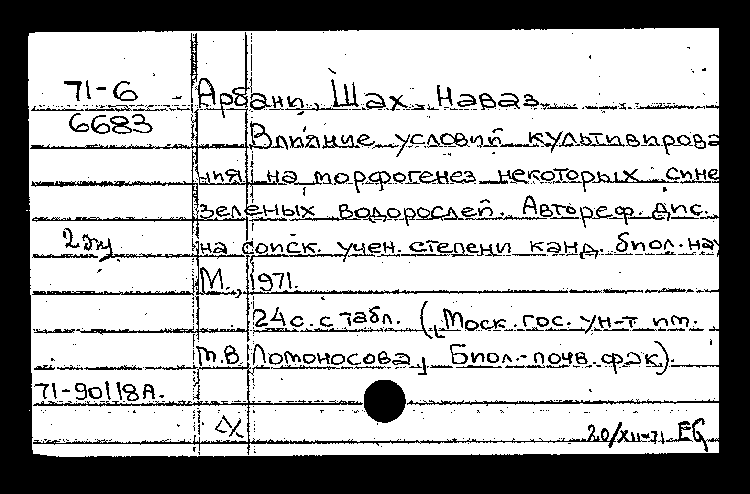 71-6
6683
Арбани, Шах Наваз
Влияние условий культивирова
ния на морфогенез некоторых сине
зеленых водорослей. Автореф. дис.
2 экз
на соиск. учен. степени канд. биол. нау
М., 1971.
24 с. с табл. (Моск. гос. ун-т им.
М.В. Ломоносова, Биол.-почв. фак).
71-90118А.
20/XII-71 EG